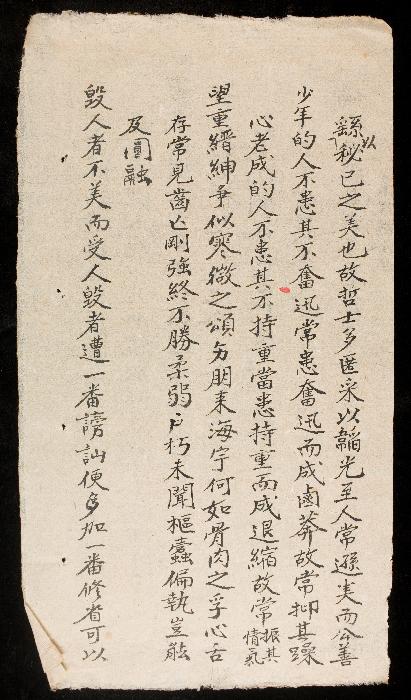 繇以秘已之美也故哲士多匿采以韜光至人常遜美而公善
少年的人不患其不奮迅常患奮迅而成鹵莽故常抑其躁
心老成的人不患其不持重當患持重而成退縮故常振其惰氣
望重縉紳爭似寒微之頌朋来海宇何如骨肉之孚心舌
存常見齒亡剛強終不勝柔弱户朽未聞樞蠹偏執豈能
及圓融
毀人者不美而受人毀者遭一番謗訕便多加一番修省可以